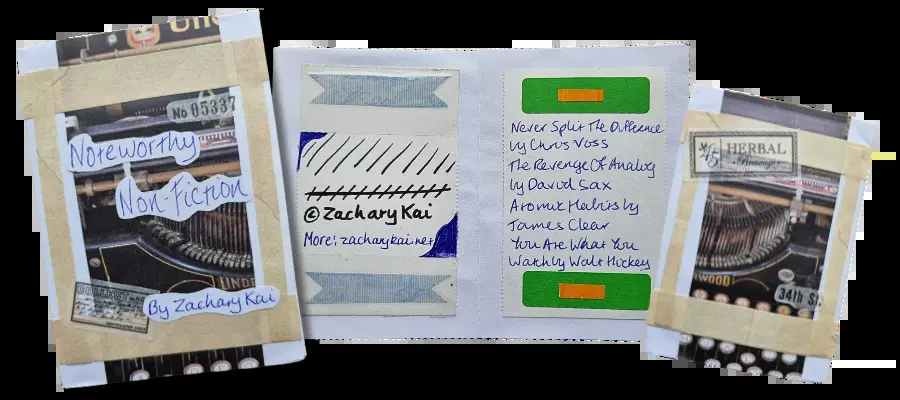 No 05337
Noteworthy
Non-Fiction
By Zachary Kai
© Zachary Kai
More: zacharykai.net
Never Split The Difference
by Chris Voss
The Revenge Of Analog
by David Sax
Atomic Habits by
James Clear
You Are What You
Watch by Walt Hickey
No 45
HERBAL
WOOD
34th St.